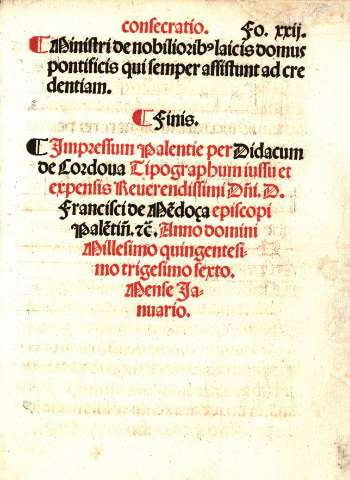 consecratio. Fo. xxij.
¶ Ministri de nobiliorib⁹ laicis domus
pontificis qui semper assistunt ad cre
dentiam.
¶ Finis.
¶ Impressum Palentie per Didacum
de Cordoua Tipographum iussu et
expensis Reuerendissimi Dñi. D.
Francisci de Mẽdoça episcopi
Palẽtiñ. ⁊c̃. Anno domini
Millesimo quingentesi-
mo trigesimo sexto.
Mense Ja-
nuario.